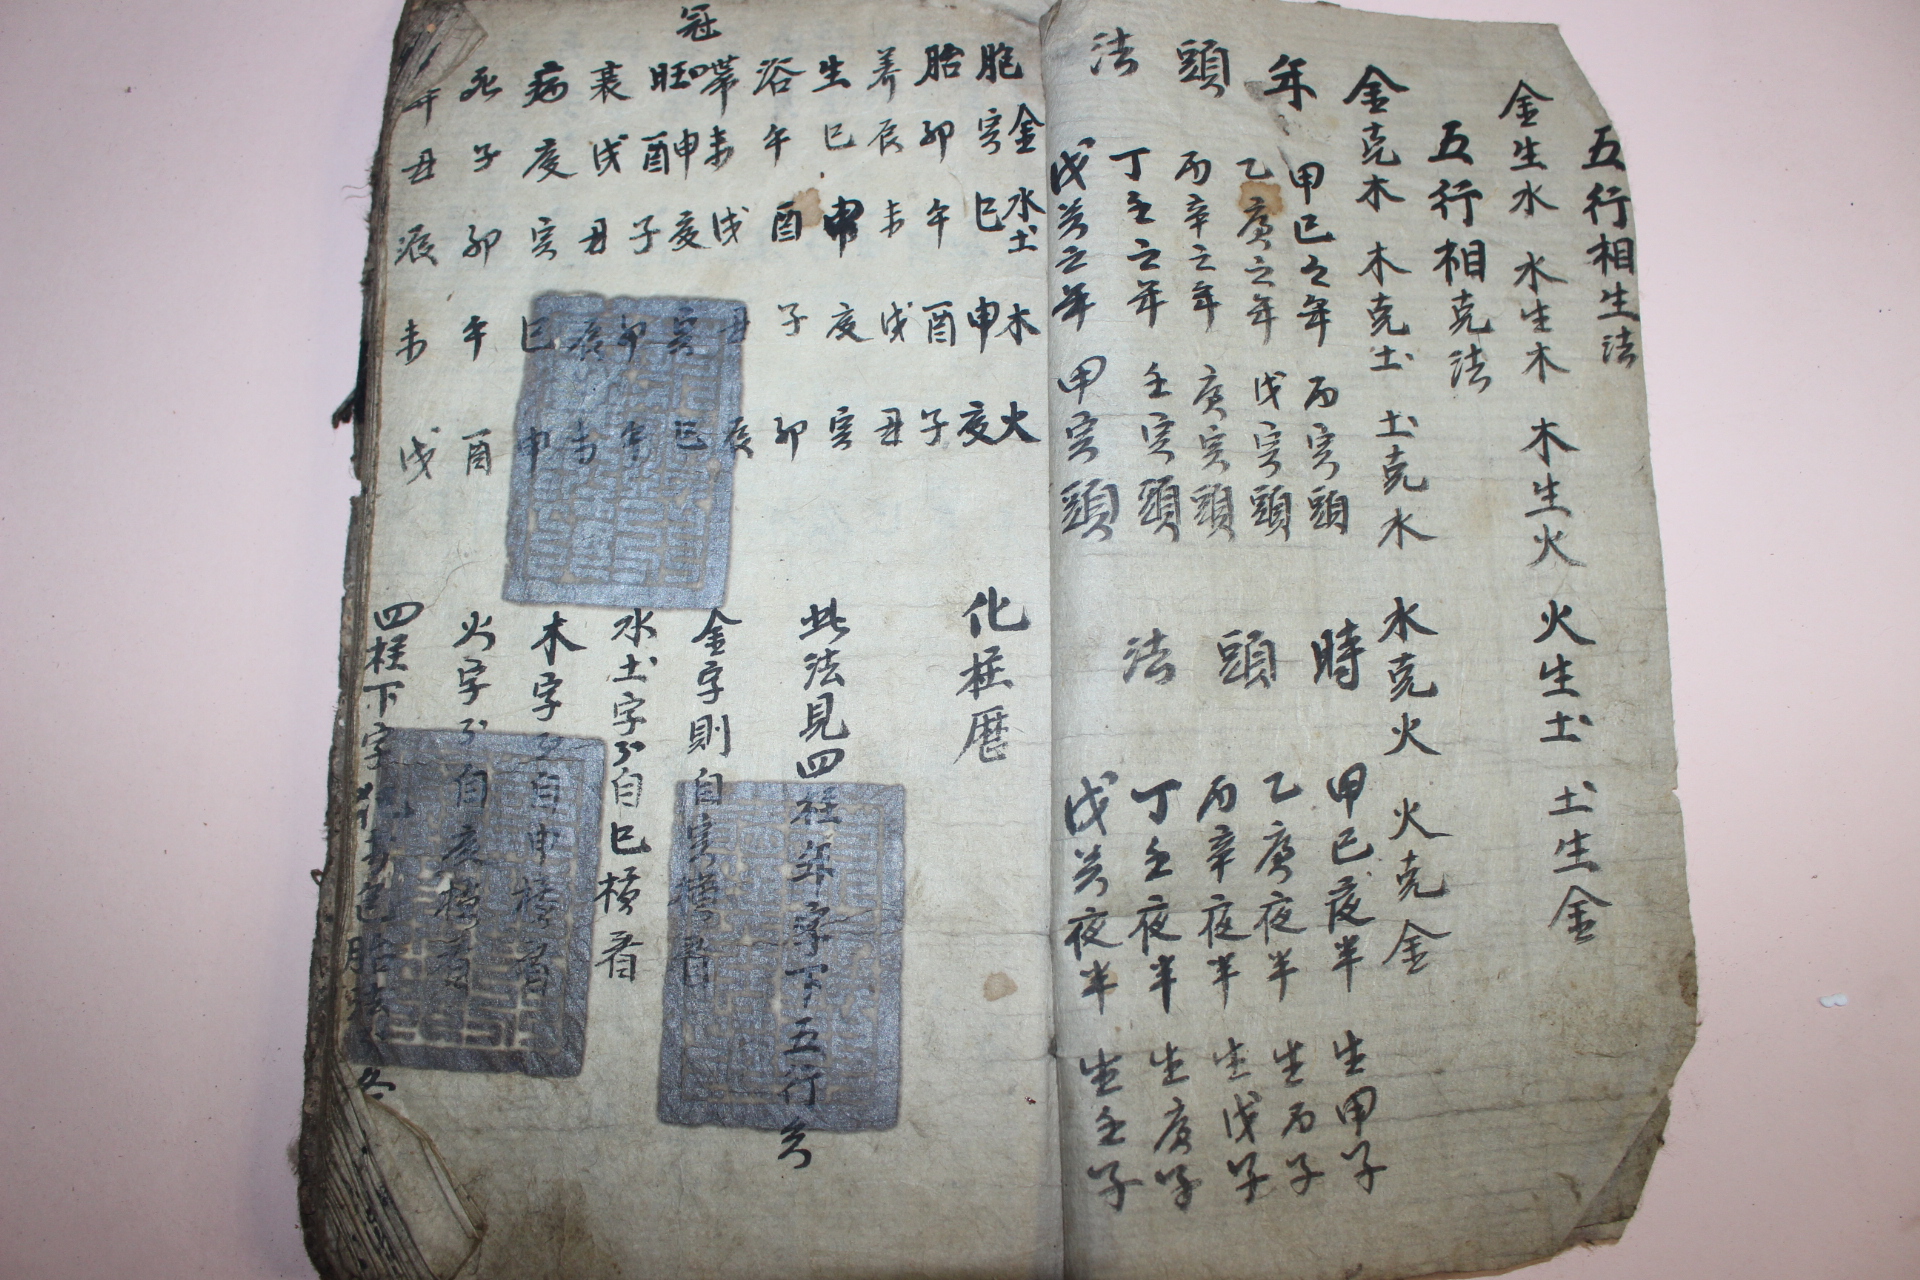 五行相生法
金生水 水生木 木生火 火生土 土生金
五行相克法
金克木 木克土 土克水 水克火 火克金
年頭法
甲己之年 丙寅頭
乙庚之年 戊寅頭
丙辛之年 庚寅頭
丁壬之年 壬寅頭
戊癸之年 甲寅頭
時頭法
甲己夜半 生甲子
乙庚夜半 生丙子
丙辛夜半 生戊子
丁壬夜半 生庚子
戊癸夜半 生壬子
金 水土 木 火
胞 寅 巳 申 亥
胎 卯 午 酉 子
養 辰 未 戌 丑
生 巳 申 亥 寅
浴 午 酉 子 卯
冠帶 未 戌 丑 辰
申 亥 寅 巳
旺 酉 子 卯 午
衰 戌 丑 辰 未
病 亥 寅 巳 申
死 子 卯 午 酉
丑 辰 未 戌
化柱曆
此法見四柱年字下五行
金字則自寅橫看
水土字 自巳橫看
木字 自申橫看
火字 自亥橫看
四柱下字